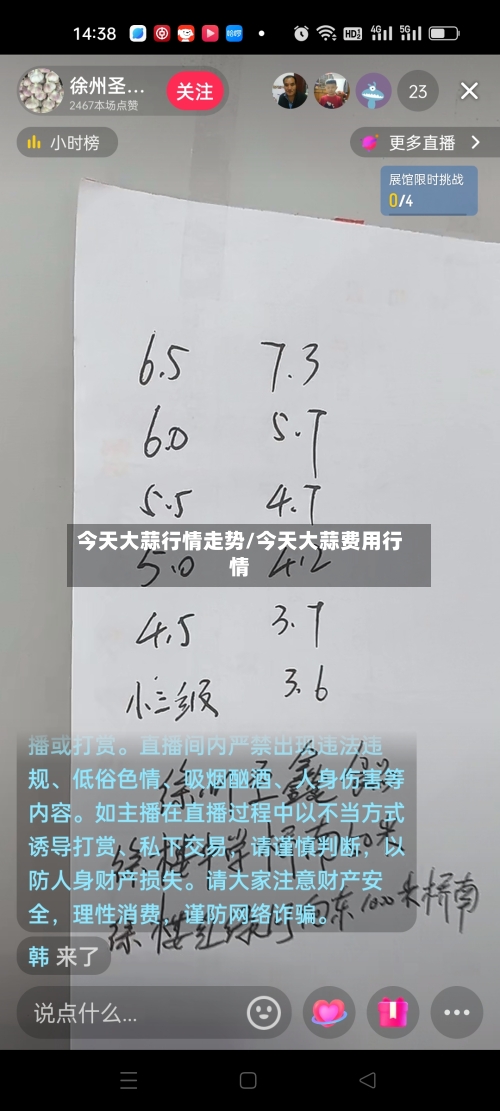 14:38
HD 4G 5G
徐州圣...
2467本场点赞
关注
23
小时榜
更多直播
展馆限时挑战
0/4
6.5 7.3
6.0 5.7
5.5 4.7
今天大蒜行情走势/今天大蒜费用行
情
5.0 4.2
4.5 3.7
小三级 3.6
播或打赏。直播间内严禁出现违法违
规、低俗色情、吸烟酗酒、人身伤害等
内容。如主播在直播过程中以不当方式
诱导打赏、私下交易，请谨慎判断，以
防人身财产损失。请大家注意财产安
全，理性消费，谨防网络诈骗。
向东1000米桥南
韩 来了
说点什么...